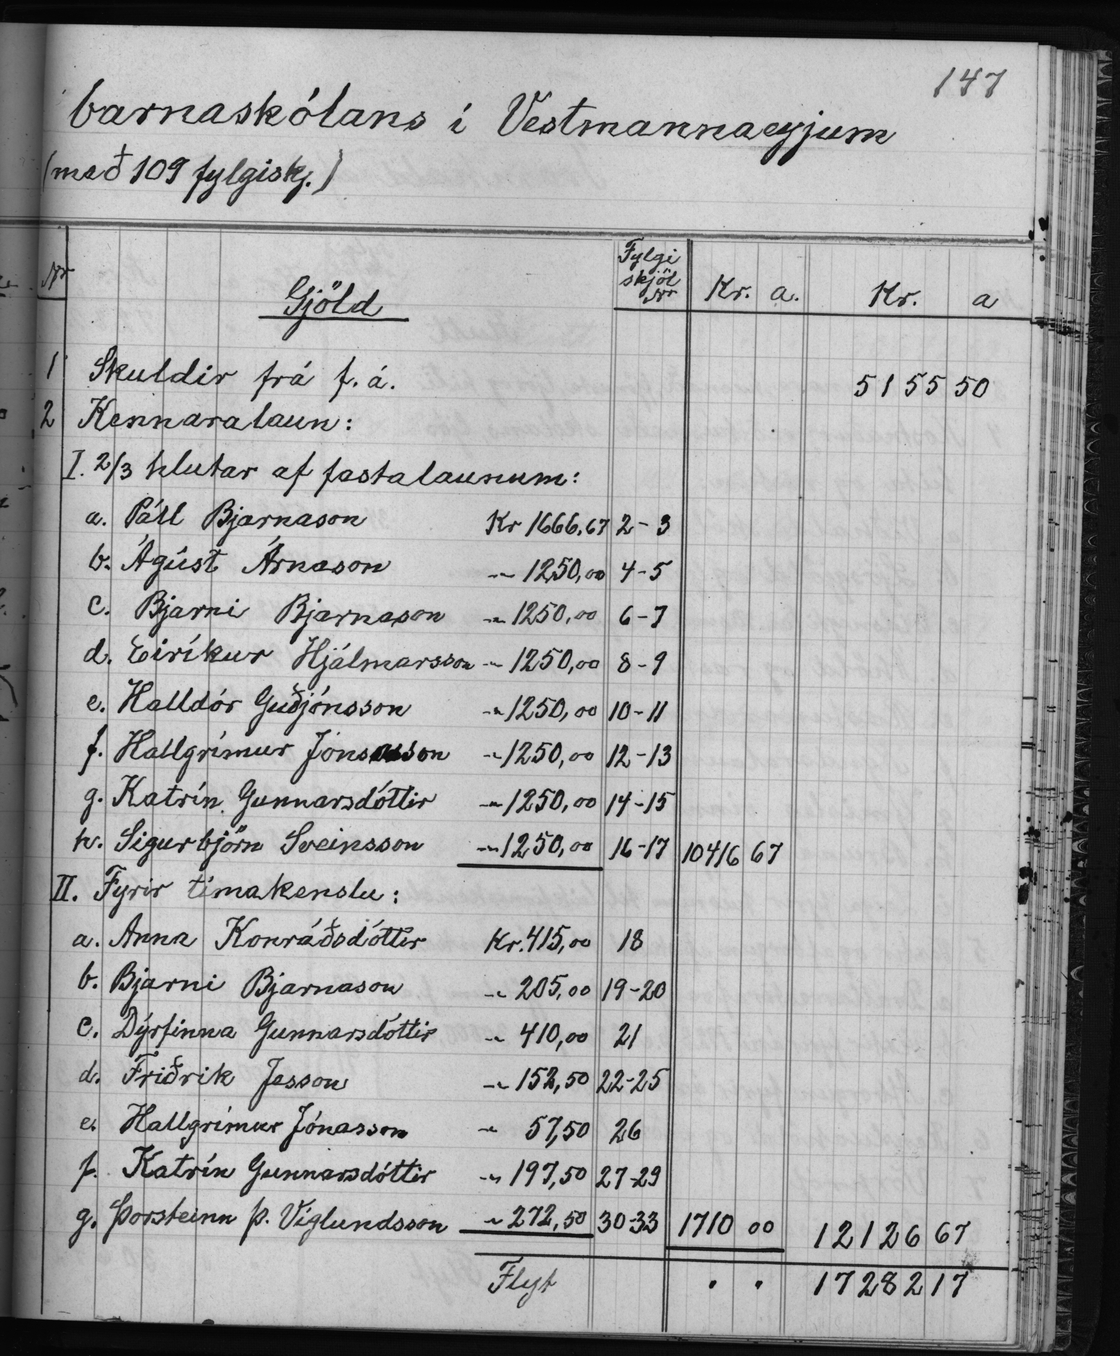 147
barnaskólans í Vestmannaeyjum
(með 109 fylgiskj.)
Nr Gjöld Fylgi skjöl Nr Kr. a. Kr. a
1 Skuldir frá f. á. 5155 50
2 Kennaralaun:
I. 2/3 hlutar af fastalaunum:
a. Páll Bjarnason Kr 1666,67 2-3
b. Ágúst Árnason -"- 1250,00 4-5
c. Bjarni Bjarnason -"- 1250,00 6-7
d. Eiríkur Hjálmarsson -"- 1250,00 8-9
e. Halldór Guðjónsson -"- 1250,00 10-11
f. Hallgrímur Jónasson -"- 1250,00 12-13
g. Katrín Gunnarsdóttir -"- 1250,00 14-15
h. Sigurbjörn Sveinsson -"- 1250,00 16-17 10416 67
II. Fyrir tímakenslu:
a. Anna Konráðsdóttir Kr. 415,00 18
b. Bjarni Bjarnason -"- 205,00 19-20
c. Dýrfinna Gunnarsdóttir -"- 410,00 21
d. Friðrik Jesson -"- 152,50 22-25
e. Hallgrímur Jónasson -"- 57,50 26
f. Katrín Gunnarsdóttir -"- 197,50 27-29
g. Þorsteinn Þ. Víglundsson -"- 272,50 30-33 1710 00 12126 67
Flyt . . 17282 17